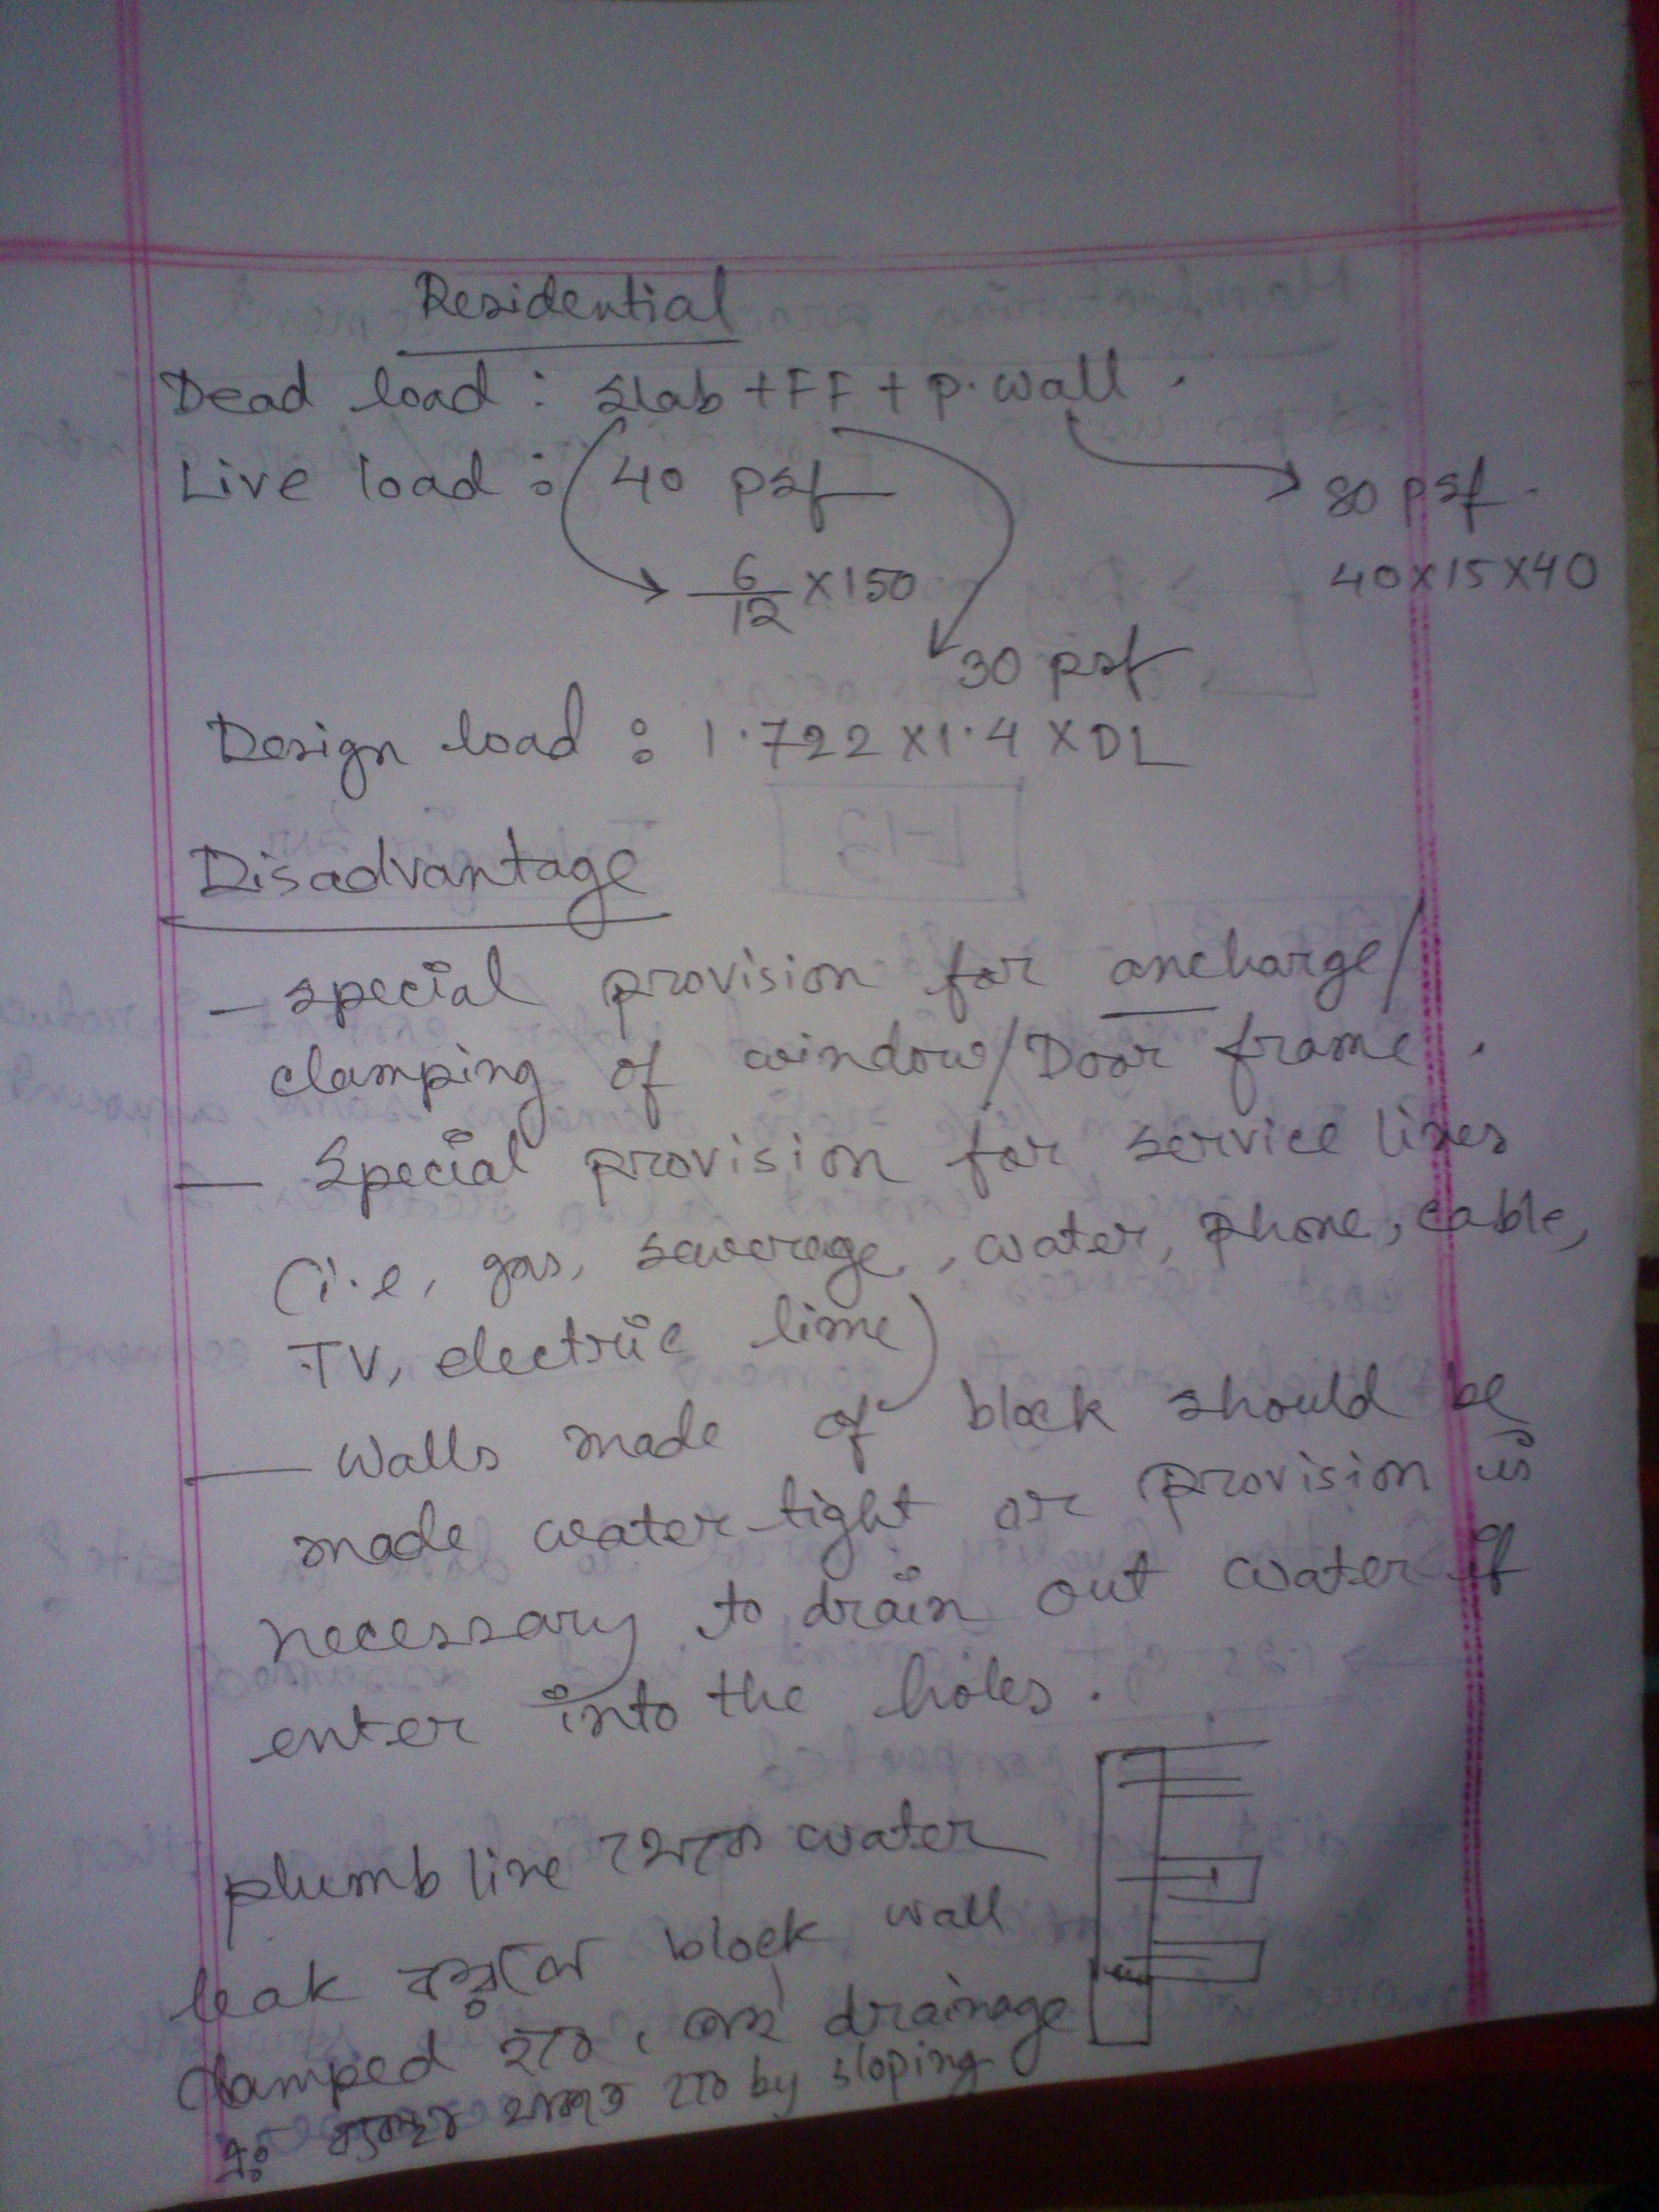 Residential
Dead load : slab + FF + p. wall.
Live load : 40 psf
80 psf.
6/12 × 150
40×15×40
30 psf
Design load : 1.722 ×1.4 × DL
Disadvantage
— special provision for ancharge/
clamping of window/Door frame.
— Special provision for service lines
(i.e, gas, sewerage, water, phone, cable,
TV, electric line)
— Walls made of block should be
made water tight or provision is
necessary to drain out water if
enter into the holes.
plumb line থেকে water
leak block wall
damped হবে, drainage
হবে by sloping